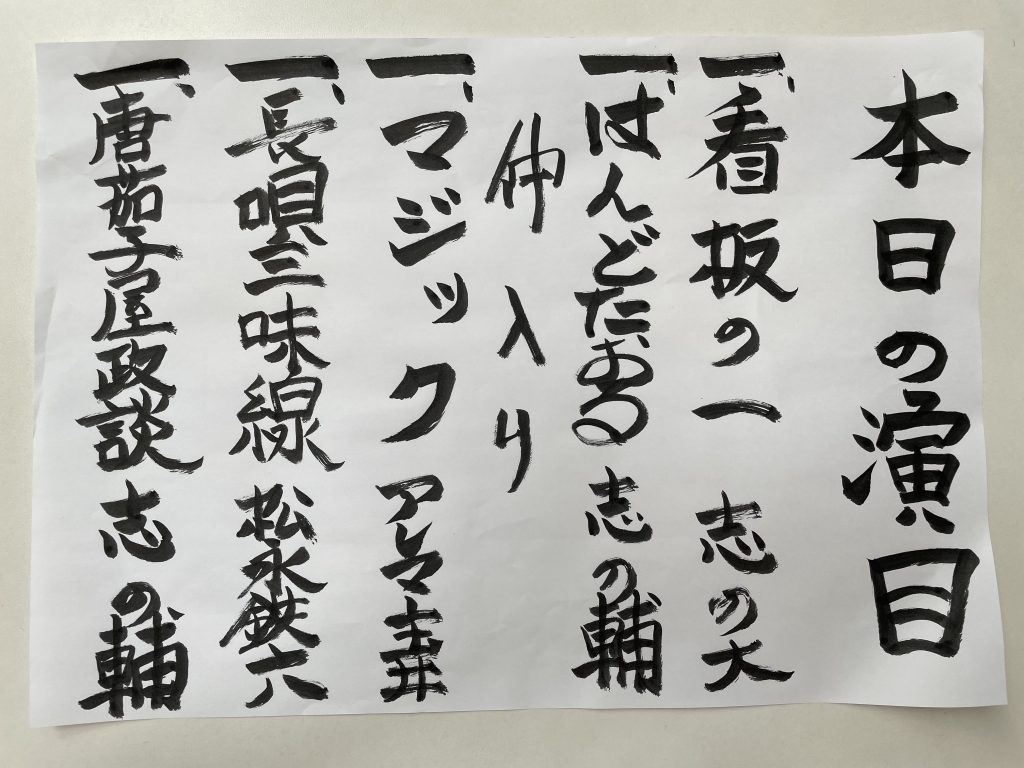 本日の演目
一、看板の一 志の大
一、ばんどたおる 志の輔
仲入り
一、マジック アレマ圭井
一、長唄三味線 松永鉄六
一、唐茄子屋政談 志の輔